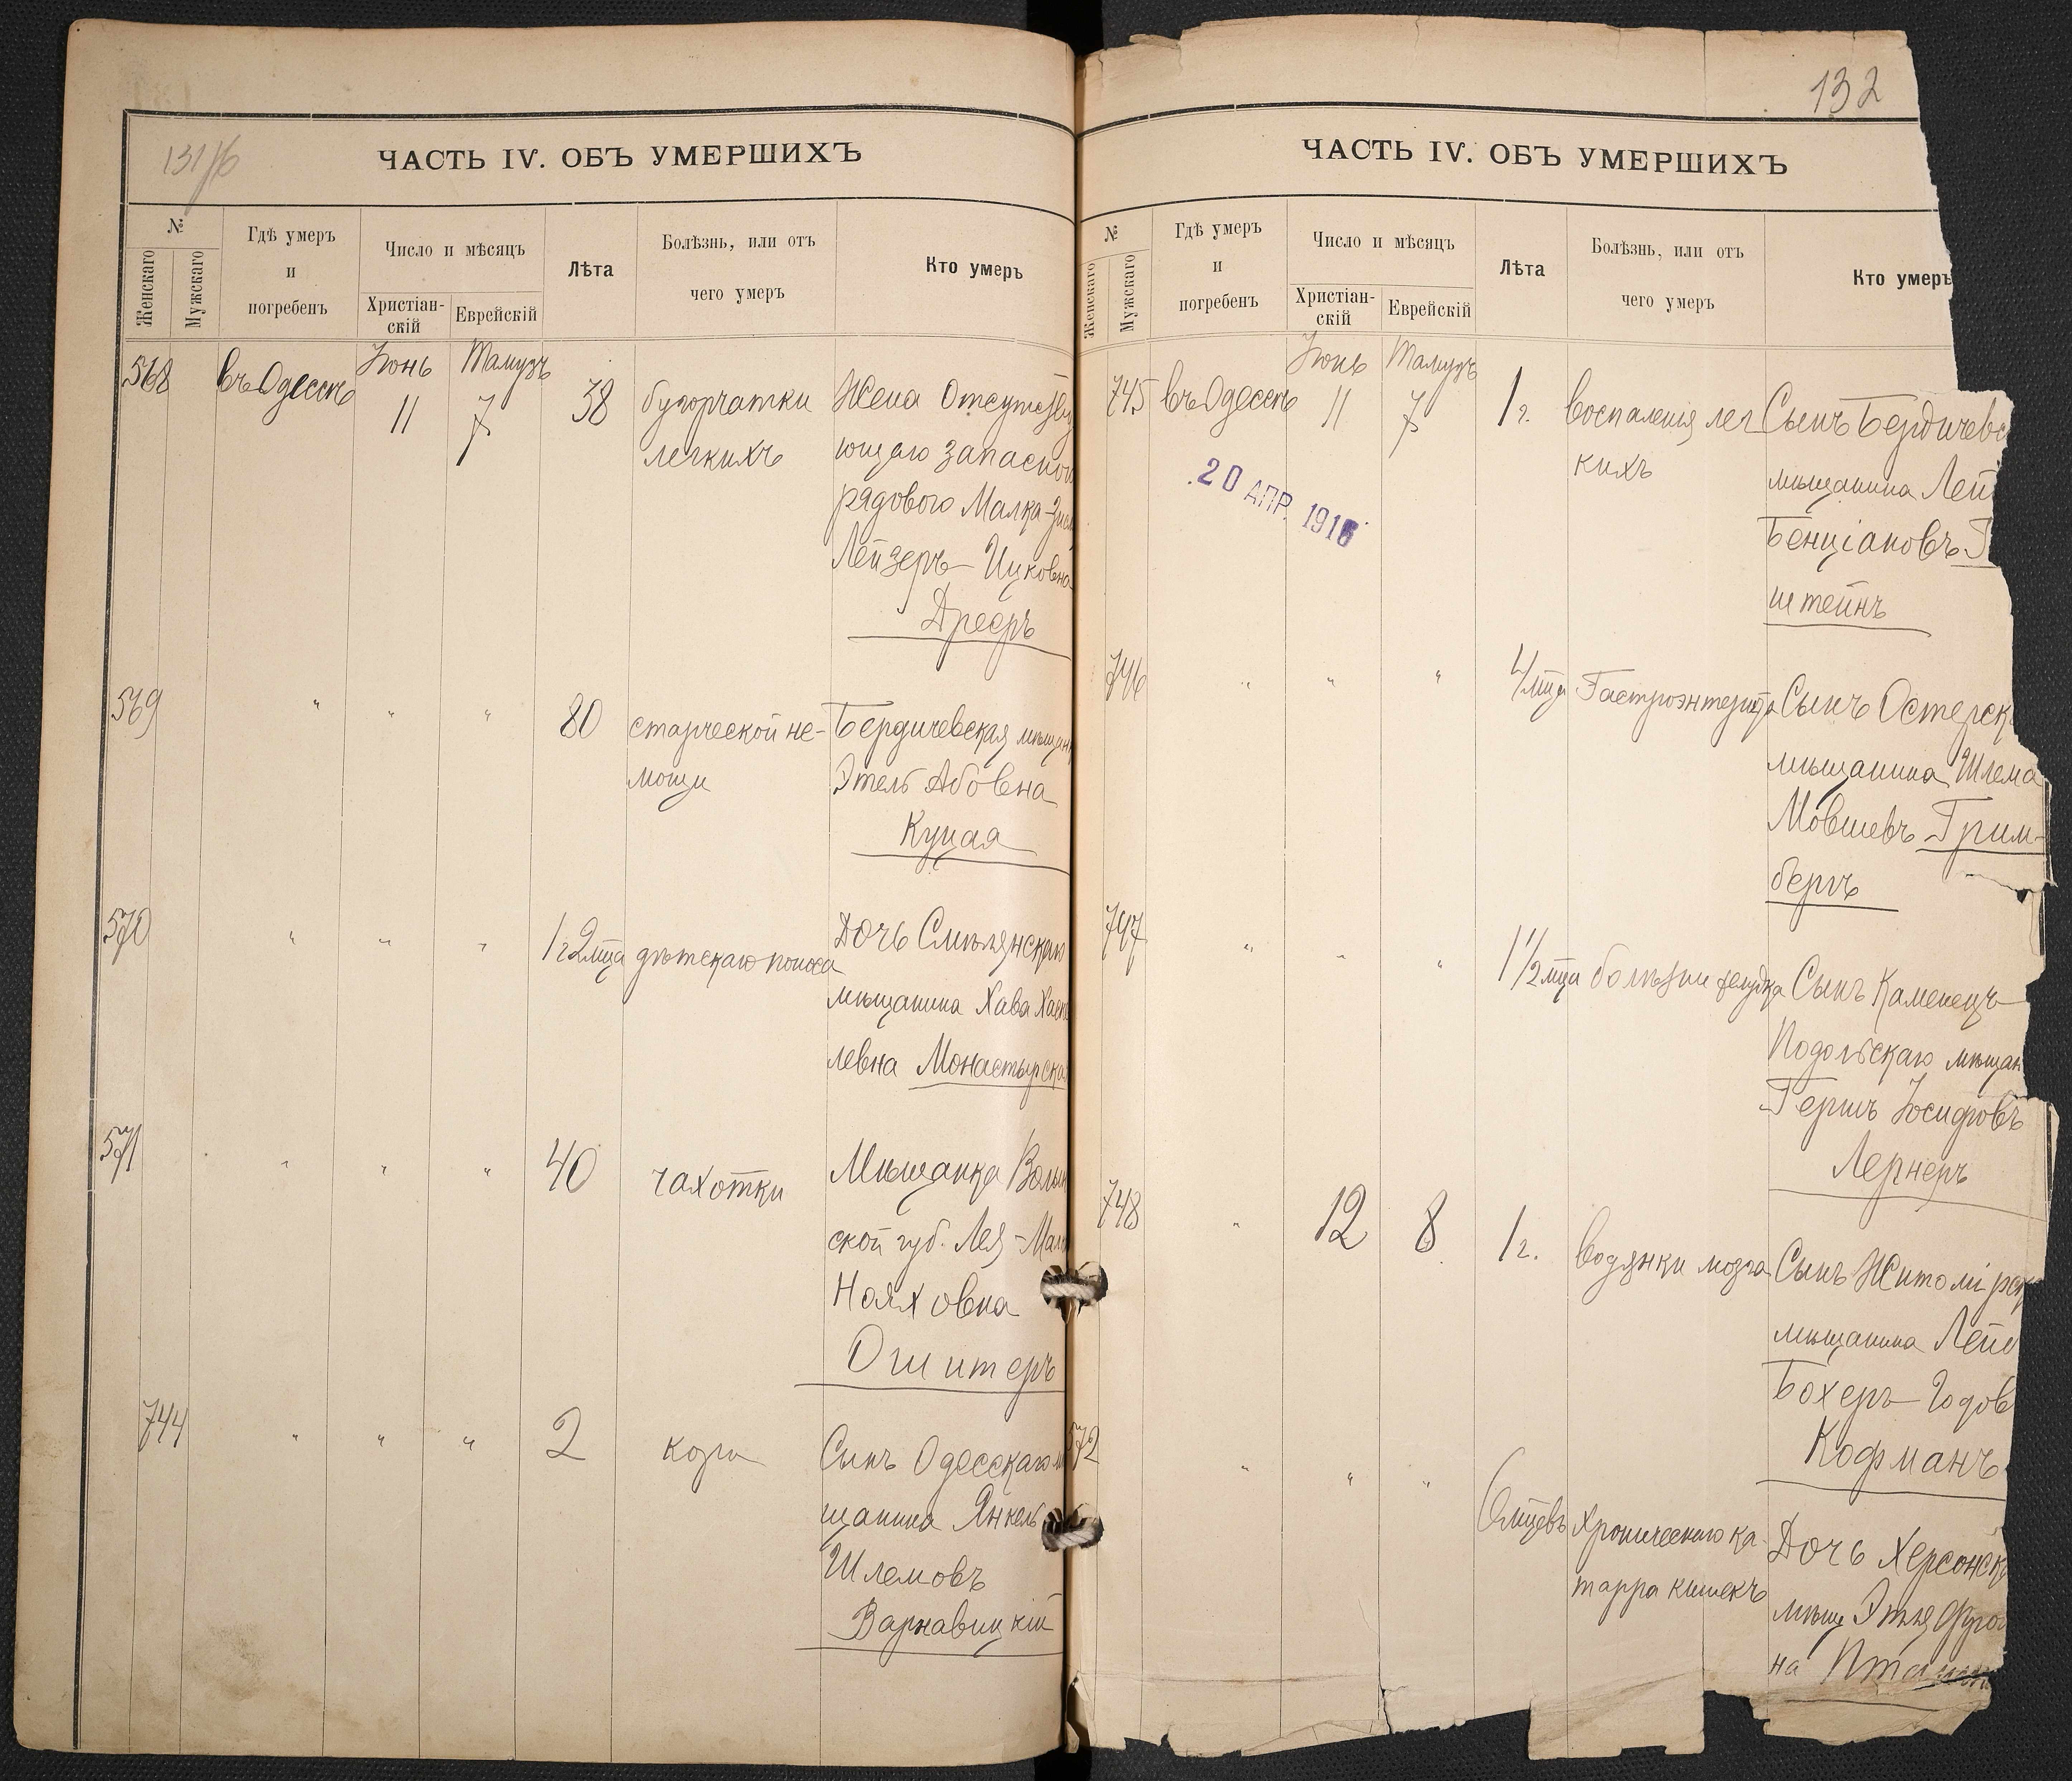 131 об
ЧАСТЬ IV. ОБЪ УМЕРШИХЪ
№
Женскаго
Мужскаго
Гдѣ умеръ
и
погребенъ
Число и мѣсяцъ
Христіан-
скій
Еврейскій
Лѣта
Болѣзнь, или отъ
чего умеръ
Кто умеръ
Іюнь Тамузъ
568 въ Одессѣ 11 7 38 бугорчатки Жена Отсутству
легкихъ ющаго запасного
рядового Малка
Лейзеръ-Ицковна
Дрееръ
569 " " " 80 старческой не- Бердичевская мѣщанк
мощи Этель Абовна
Куцая
570 " " " 1 г 2 мца дѣтскаго поноса Дочь Смѣлянскаго
мѣщанина Хава
левна Монастырская
571 " " " 40 чахотки Мѣщанка Волын
ской губ. Лея-Мал
Нояховна
Ошитеръ
744 " " " 2 кори Сынъ Одесскаго мѣ
щанина Янкель
Шлемовъ
Варнавицкій
132
ЧАСТЬ IV. ОБЪ УМЕРШИХЪ
№
Женскаго
Мужскаго
Гдѣ умеръ
и
погребенъ
Число и мѣсяцъ
Христіан-
скій
Еврейскій
Лѣта
Болѣзнь, или отъ
чего умеръ
Кто умеръ
Іюнь Тамузъ
745 въ Одессѣ 11 7 1 г. воспаленія лег Сынъ Бердичевс
кихъ мѣщанина Лей
20 АПР. 1916
Бенціановъ Г
штейнъ
746 " " " 4 мца Гастроэнтерита Сынъ Остерск
мѣщанина Шлема
Мовшевъ Грим-
бергъ
747 " " " 1 1/2 мца болѣзни желудка Сынъ Каменецъ-
Подольскаго мѣщан
Гершъ Іосифовъ
Лернеръ
748 " 12 8 1 г. водянки мозга Сынъ Житомірск
мѣщанина Лей
Бохеръ-Годов
Кофманъ
572 " " " 6 мцевъ хроническаго ка- Дочь Херсонск
тарра кишекъ мѣщ Этля
на